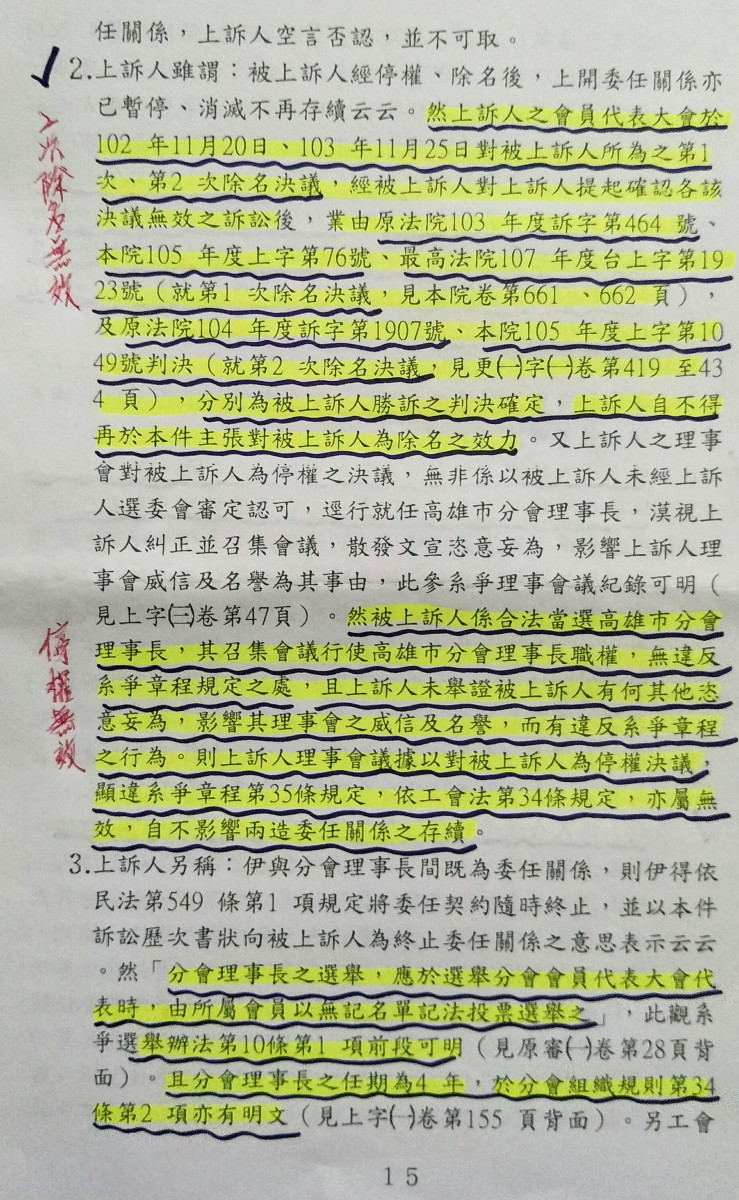 任關係，上訴人空言否認，並不可取。
2.上訴人雖謂：被上訴人經停權、除名後，上開委任關係亦
已暫停、消滅不再存續云云。然上訴人之會員代表大會於
102 年11月20日、103 年11月25日對被上訴人所為之第1
次、第2 次除名決議，經被上訴人對上訴人提起確認各該
決議無效之訴訟後，業由原法院103 年度訴字第464 號、
本院105 年度上字第76號、最高法院107 年度台上字第19
23號（就第1 次除名決議，見本院卷第661 、662 頁），
及原法院104 年度訴字第1907號、本院105 年度上字第10
49號判決（就第2 次除名決議，見更㈠字㈠卷第419 至43
4 頁），分別為被上訴人勝訴之判決確定，上訴人自不得
再於本件主張對被上訴人為除名之效力。又上訴人之理事
會對被上訴人為停權之決議，無非係以被上訴人未經上訴
人選委會審定認可，逕行就任高雄市分會理事長，漠視上
訴人糾正並召集會議，散發文宣恣意妄為，影響上訴人理
事會威信及名譽為其事由，此參系爭理事會議紀錄可明（
見上字㈢卷第47頁）。然被上訴人係合法當選高雄市分會
理事長，其召集會議行使高雄市分會理事長職權，無違反
系爭章程規定之處，且上訴人未舉證被上訴人有何其他恣
意妄為，影響其理事會之威信及名譽，而有違反系爭章程
之行為。則上訴人理事會議據以對被上訴人為停權決議，
顯違系爭章程第35條規定，依工會法第34條規定，亦屬無
效，自不影響兩造委任關係之存續。
3.上訴人另稱：伊與分會理事長間既為委任關係，則伊得依
民法第549 條第1 項規定將委任契約隨時終止，並以本件
訴訟歷次書狀向被上訴人為終止委任關係之意思表示云云
。然「分會理事長之選舉，應於選舉分會會員代表大會代
表時，由所屬會員以無記名單記法投票選舉之」，此觀系
爭選舉辦法第10條第1 項前段可明（見原審㈠卷第28頁背
面）。且分會理事長之任期為4 年，於分會組織規則第34
條第2 項亦有明文（見上字㈠卷第155 頁背面）。另工會
15
次除名無效
停權無效